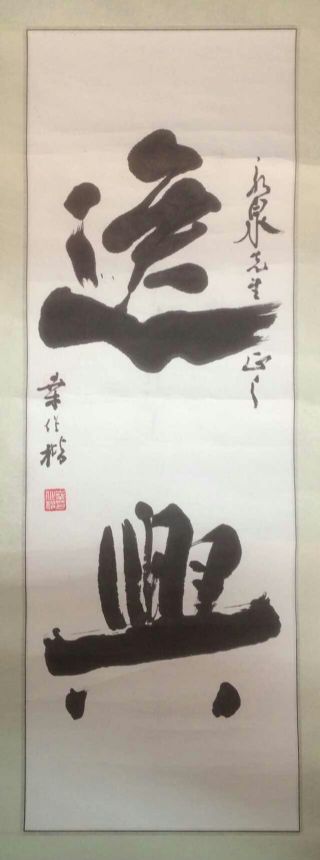 永泉先生正之
逸興
桑作楷